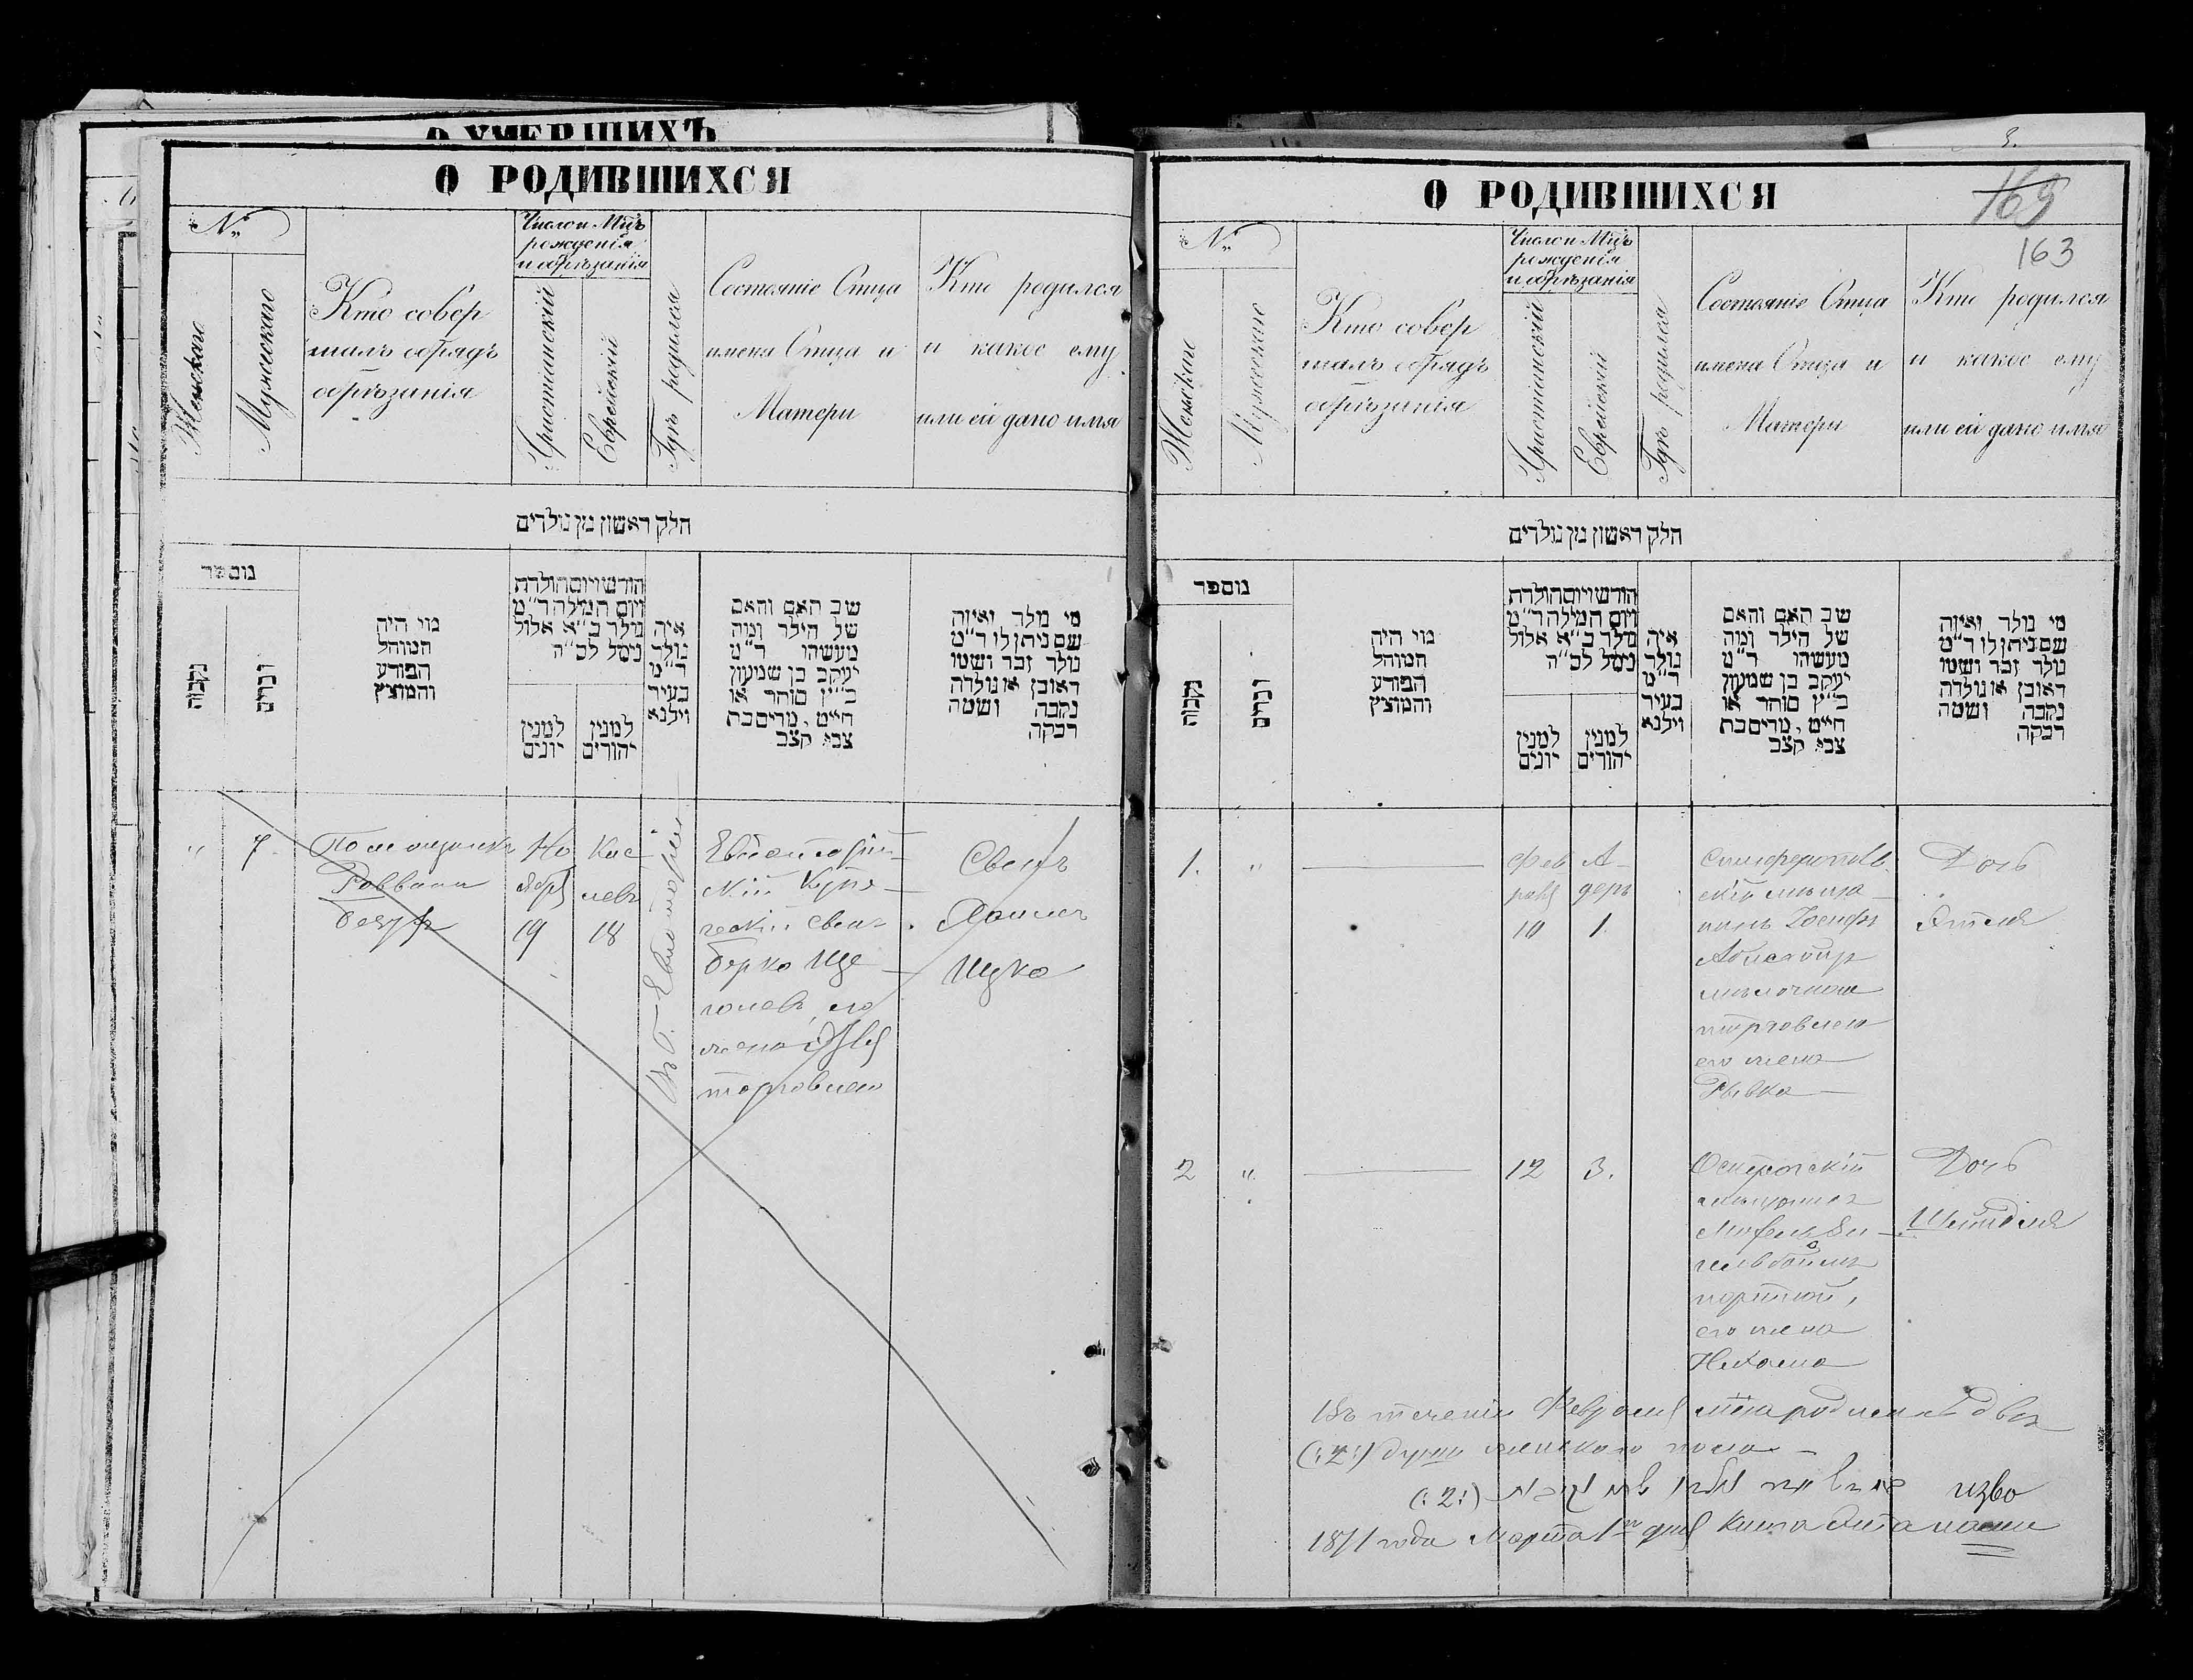 О РОДИВШИХСЯ
№
Женскаго
Мужескаго
Кто совер
шалъ обрядъ
обрѣзанія
Число и Мцъ
рожденія
и обрѣзанія
Христіанскій
Еврейскій
Гдѣ родился
Состояніе Отца
имена Отца и
Матери
Кто родился
и какое ему
или ей дано имя
חלק ראשון מן נולדים
נומפר
נקבות
זכרים
מי היה
המוהל
הפורע
והמוצץ
חודש ויום הולדת
ויום המילה ר"מ
נולד ב"א אלול
נימל לכ"ה
למנין
יונים
למנין
יהודים
איה
נולד
ר"מ
בעיר
וילנא
שב האב והאם
של הילד ומה
מעשהו ר"מ
יעקב בן שמעון
כ"ץ סוחר או
חייט, מרים בת
צבי קצב
מי נולד ואיזה
שם ניתן לו ר"מ
נולד זכר ושמו
ראובן או נולדה
נקבה ושמה
רבקה
" 7
Но
ября
19
Кис
левъ
18
Евпаторій
скій Купе
ческій Сынъ
Берко Ще
голевъ, его
жена
торговлею
Сынъ
О РОДИВШИХСЯ
169
163
№
Женскаго
Мужескаго
Кто совер
шалъ обрядъ
обрѣзанія
Число и Мцъ
рожденія
и обрѣзанія
Христіанскій
Еврейскій
Гдѣ родился
Состояніе Отца
имена Отца и
Матери
Кто родился
и какое ему
или ей дано имя
חלק ראשון מן נולדים
נומפר
נקבות
זכרים
מי היה
המוהל
הפורע
והמוצץ
חודש ויום הולדת
ויום המילה ר"מ
נולד ב"א אלול
נימל לכ"ה
למנין
יונים
למנין
יהודים
איה
נולד
ר"מ
בעיר
וילנא
שב האב והאם
של הילד ומה
מעשהו ר"מ
יעקב בן שמעון
כ"ץ סוחר או
חייט, מרים בת
צבי קצב
מי נולד ואיזה
שם ניתן לו ר"מ
נולד זכר ושמו
ראובן או נולדה
נקבה ושמה
רבקה
1. "
Фев
раля
10
А
деръ
1
Симферополь
скій мѣща
нинъ Іосифъ
мѣлочною
торговлею
его жена
Рывка
Дочь
Этля
2 "
12
3.
Острогскій
мѣщанинъ
портной,
его жена
Нехама
Дочь
Шейндля
Въ теченіи Февраля мца родилось двѣ
(:2:) души женскаго пола
(:2:)
1871 года Марта 1го дня Книга эта